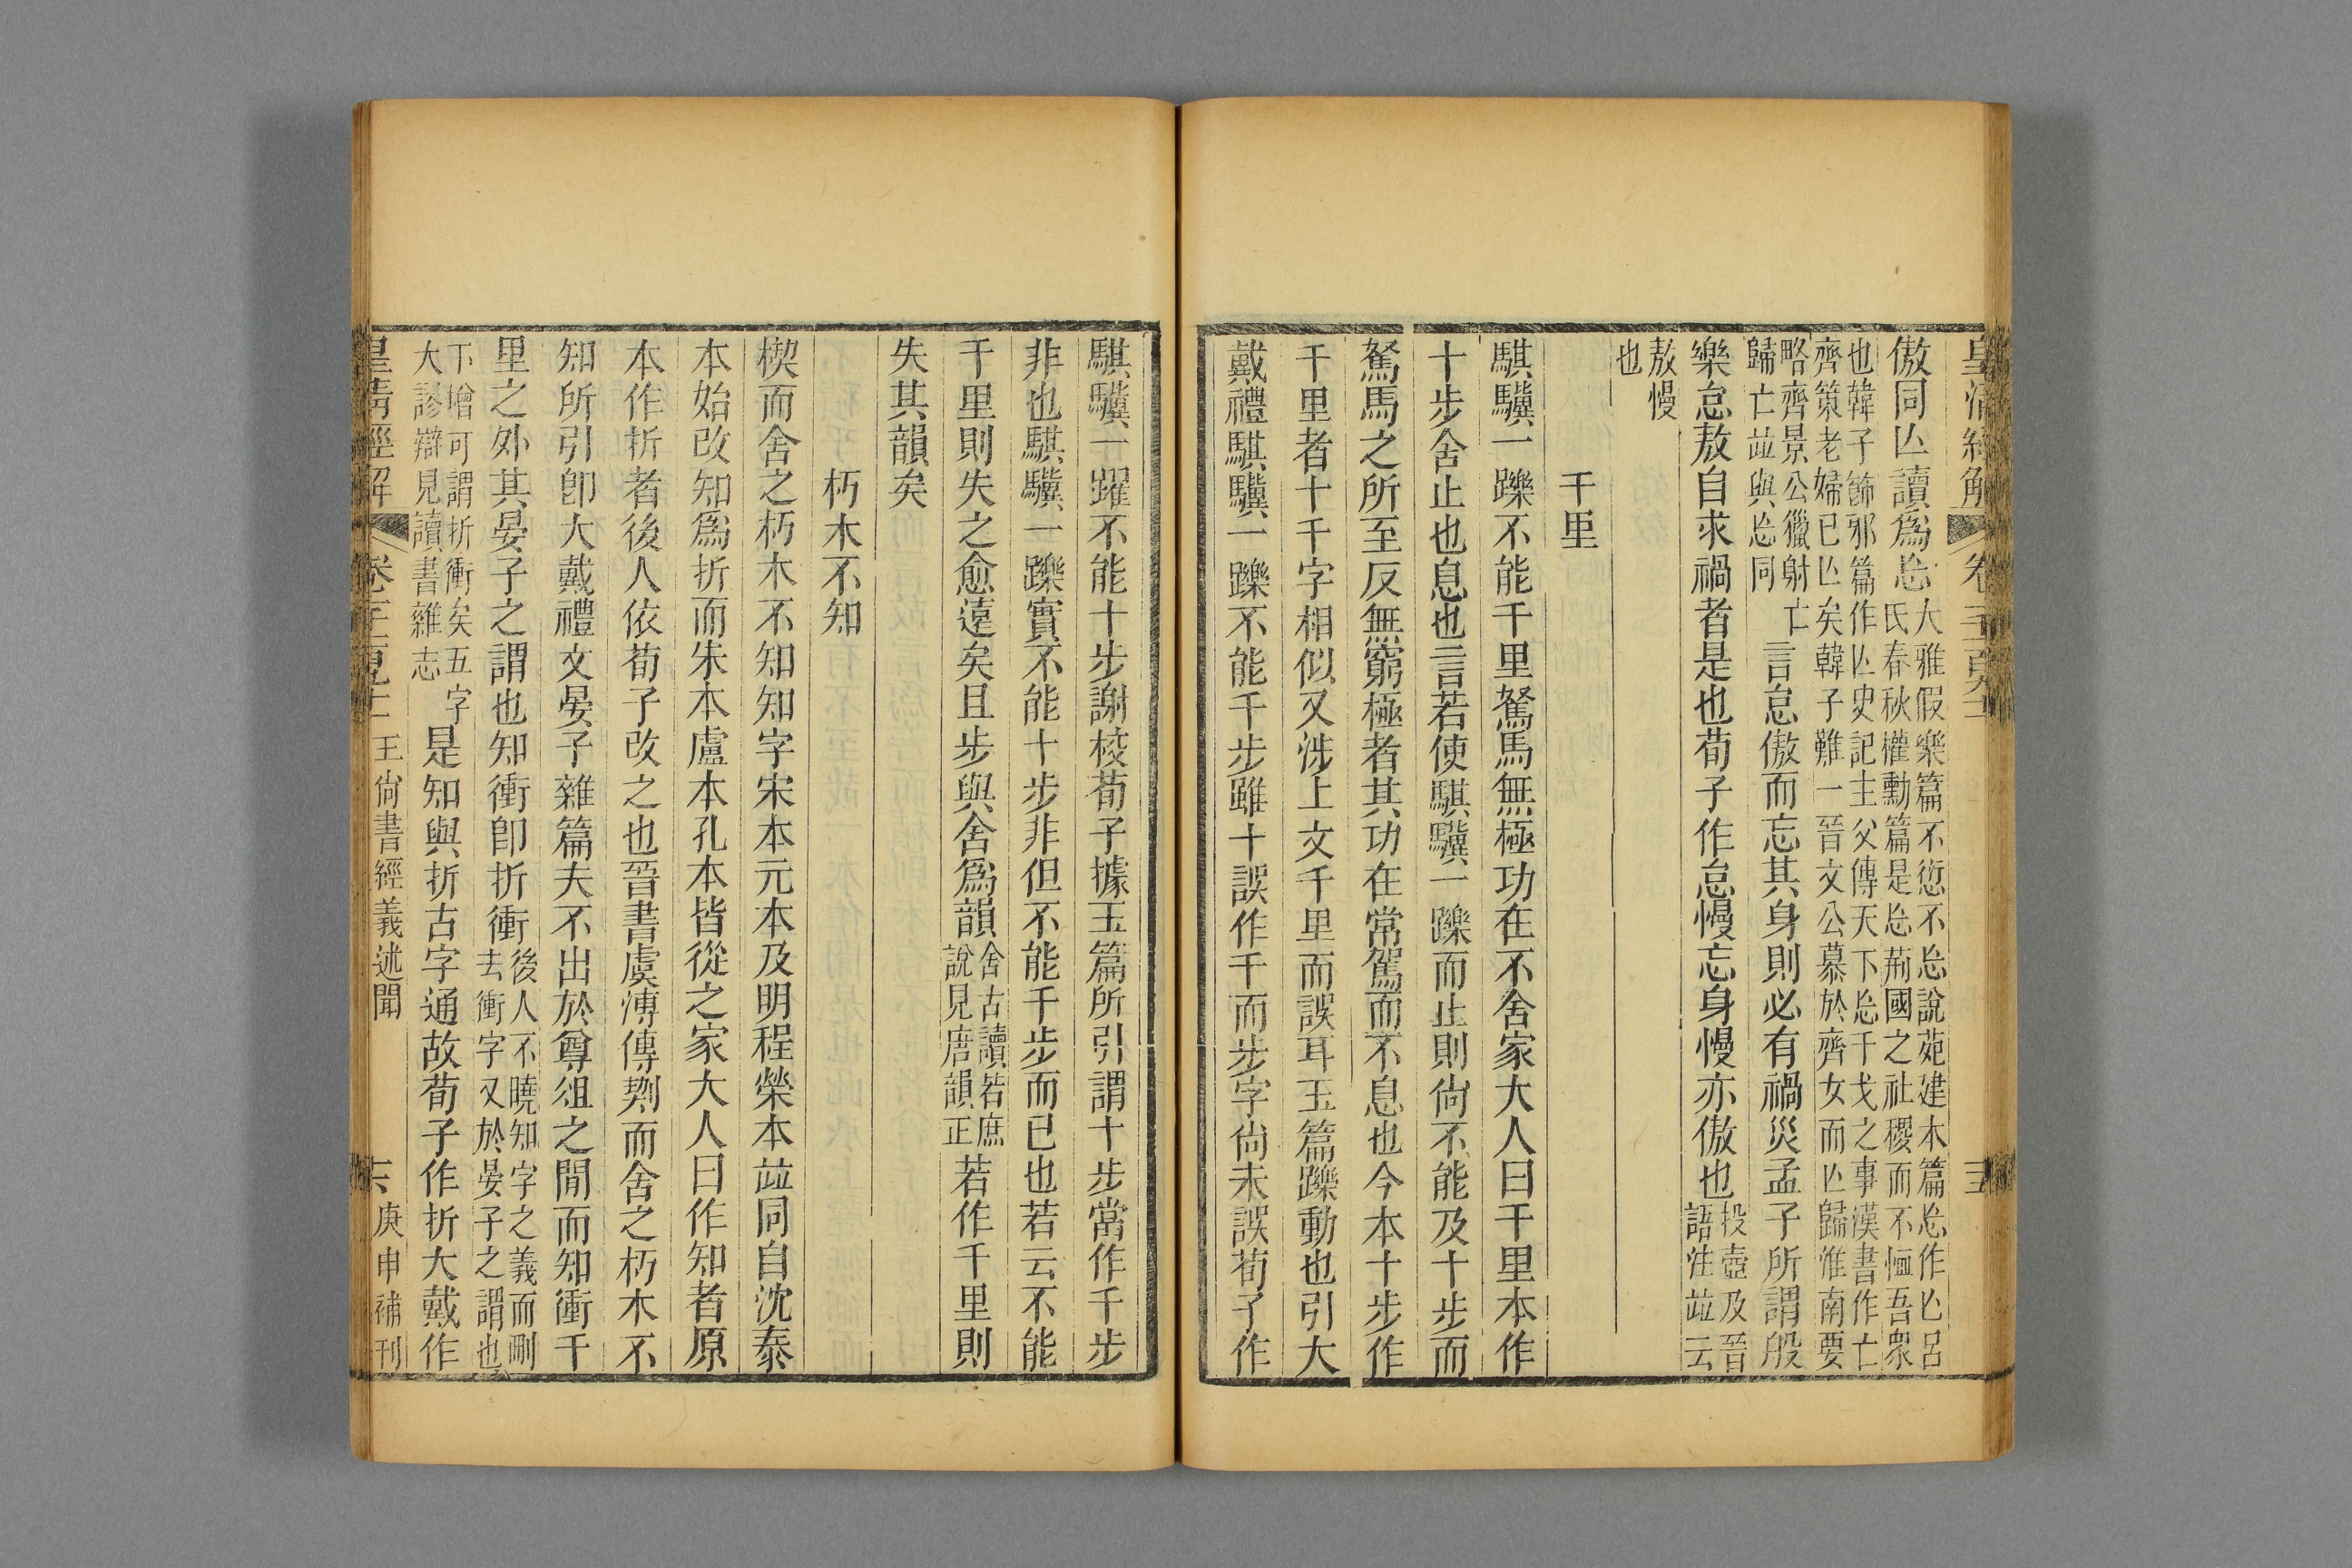 傲同亾讀爲㤀大雅假樂篇不愆不㤀說苑建本篇㤀作亾呂氏春秋權勳篇是㤀荊國之社稷而不恤吾衆
也韓子飾邪篇作亾史記主父傳天下㤀干戈之事漢書作亡齊策老婦已亾矣韓子難一晉文公慕於齊女而亾歸淮南要
略齊景公獵射亡歸亡竝與㤀同言怠傲而忘其身則必有禍災孟子所謂般
樂怠敖自求禍者是也荀子作怠慢忘身慢亦傲也投壺及晉語注竝云
敖慢也
千里
騏驥一躒不能千里駑馬無極功在不舍家大人曰千里本作
十步舍止也息也言若使騏驥一躒而止則尙不能及十步而
駑馬之所至反無窮極者其功在常駕而不息也今本十步作
千里者十千字相似又涉上文千里而誤耳玉篇躒動也引大
戴禮騏驥一躒不能千步雖十誤作千而步字尙未誤荀子作
騏驥一躍不能十步謝校荀子據玉篇所引謂十步當作千步
非也騏驥一躒實不能十步非但不能千步而已也若云不能
千里則失之愈遠矣且步與舍爲韻舍古讀若庶說見唐韻正若作千里則
失其韻矣
朽木不知
楔而舍之朽木不知知字宋本元本及明程榮本竝同自沈泰
本始改知爲折而朱本盧本孔本皆從之家大人曰作知者原
本作折者後人依荀子改之也晉書虞溥傳剟而舍之朽木不
知所引卽大戴禮文晏子雜篇夫不出於尊俎之閒而知衝千
里之外其晏子之謂也知衝卽折衝後人不曉知字之義而刪去衝字又於晏子之謂也
下增可謂折衝矣五字大謬辯見讀書雜志是知與折古字通故荀子作折大戴作
皇淸經解
王尙書經義述聞
庚申補刊